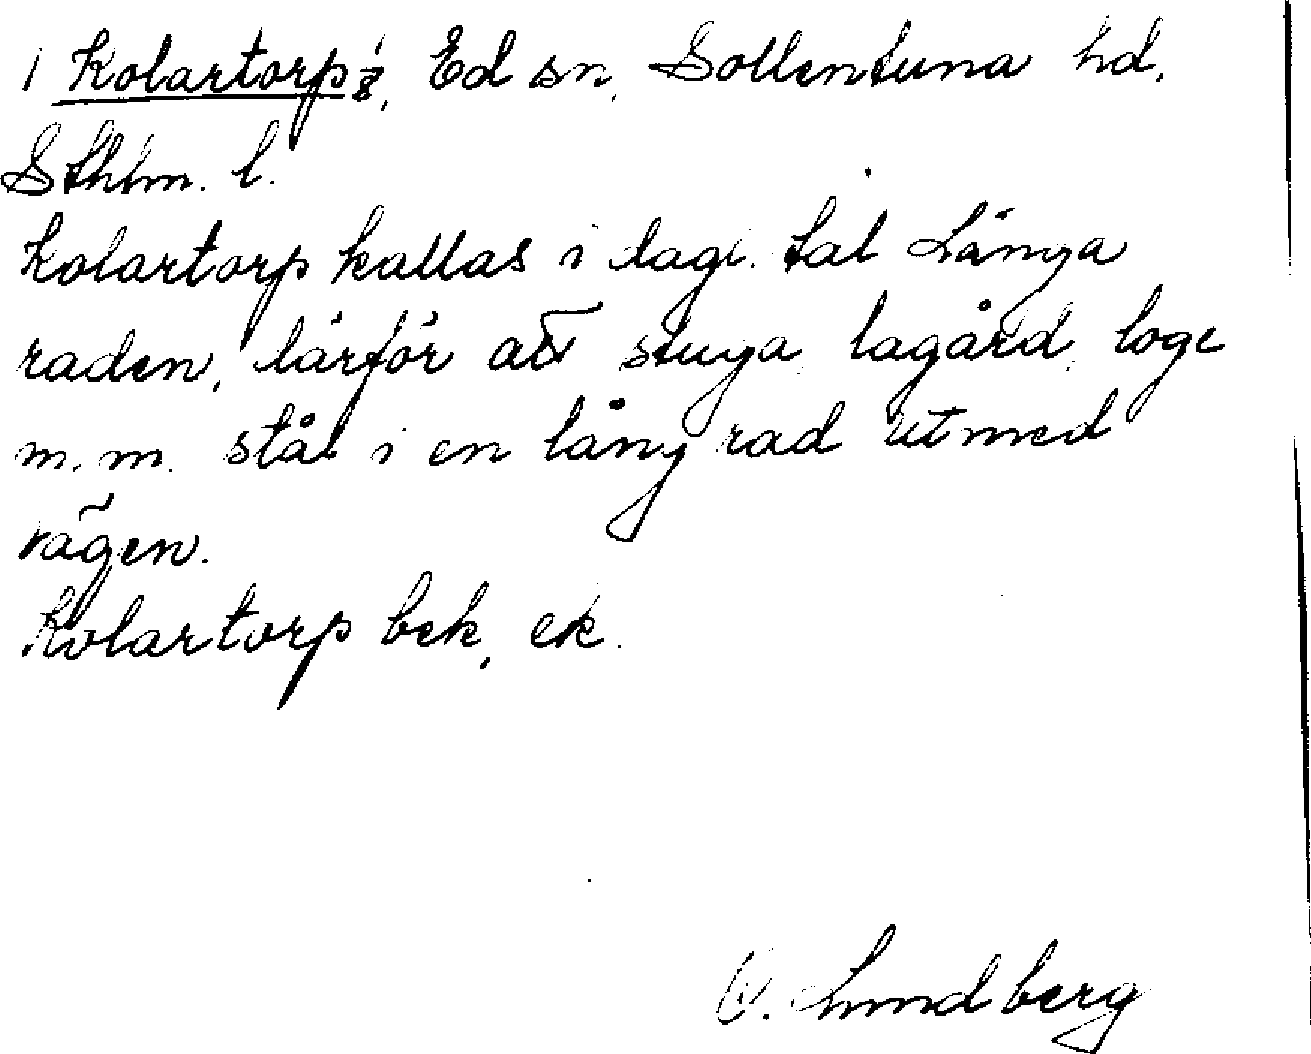 1 Kolartorp, Ed sn, Sollentuna hd,
Sthlm. l.
Kolartorp kallas i dagl. tal Långa
raden, därför att stuga, lagård, loge
m.m. står i en lång rad utmed
vägen.
Kolartorp bek, ek.
Lundberg